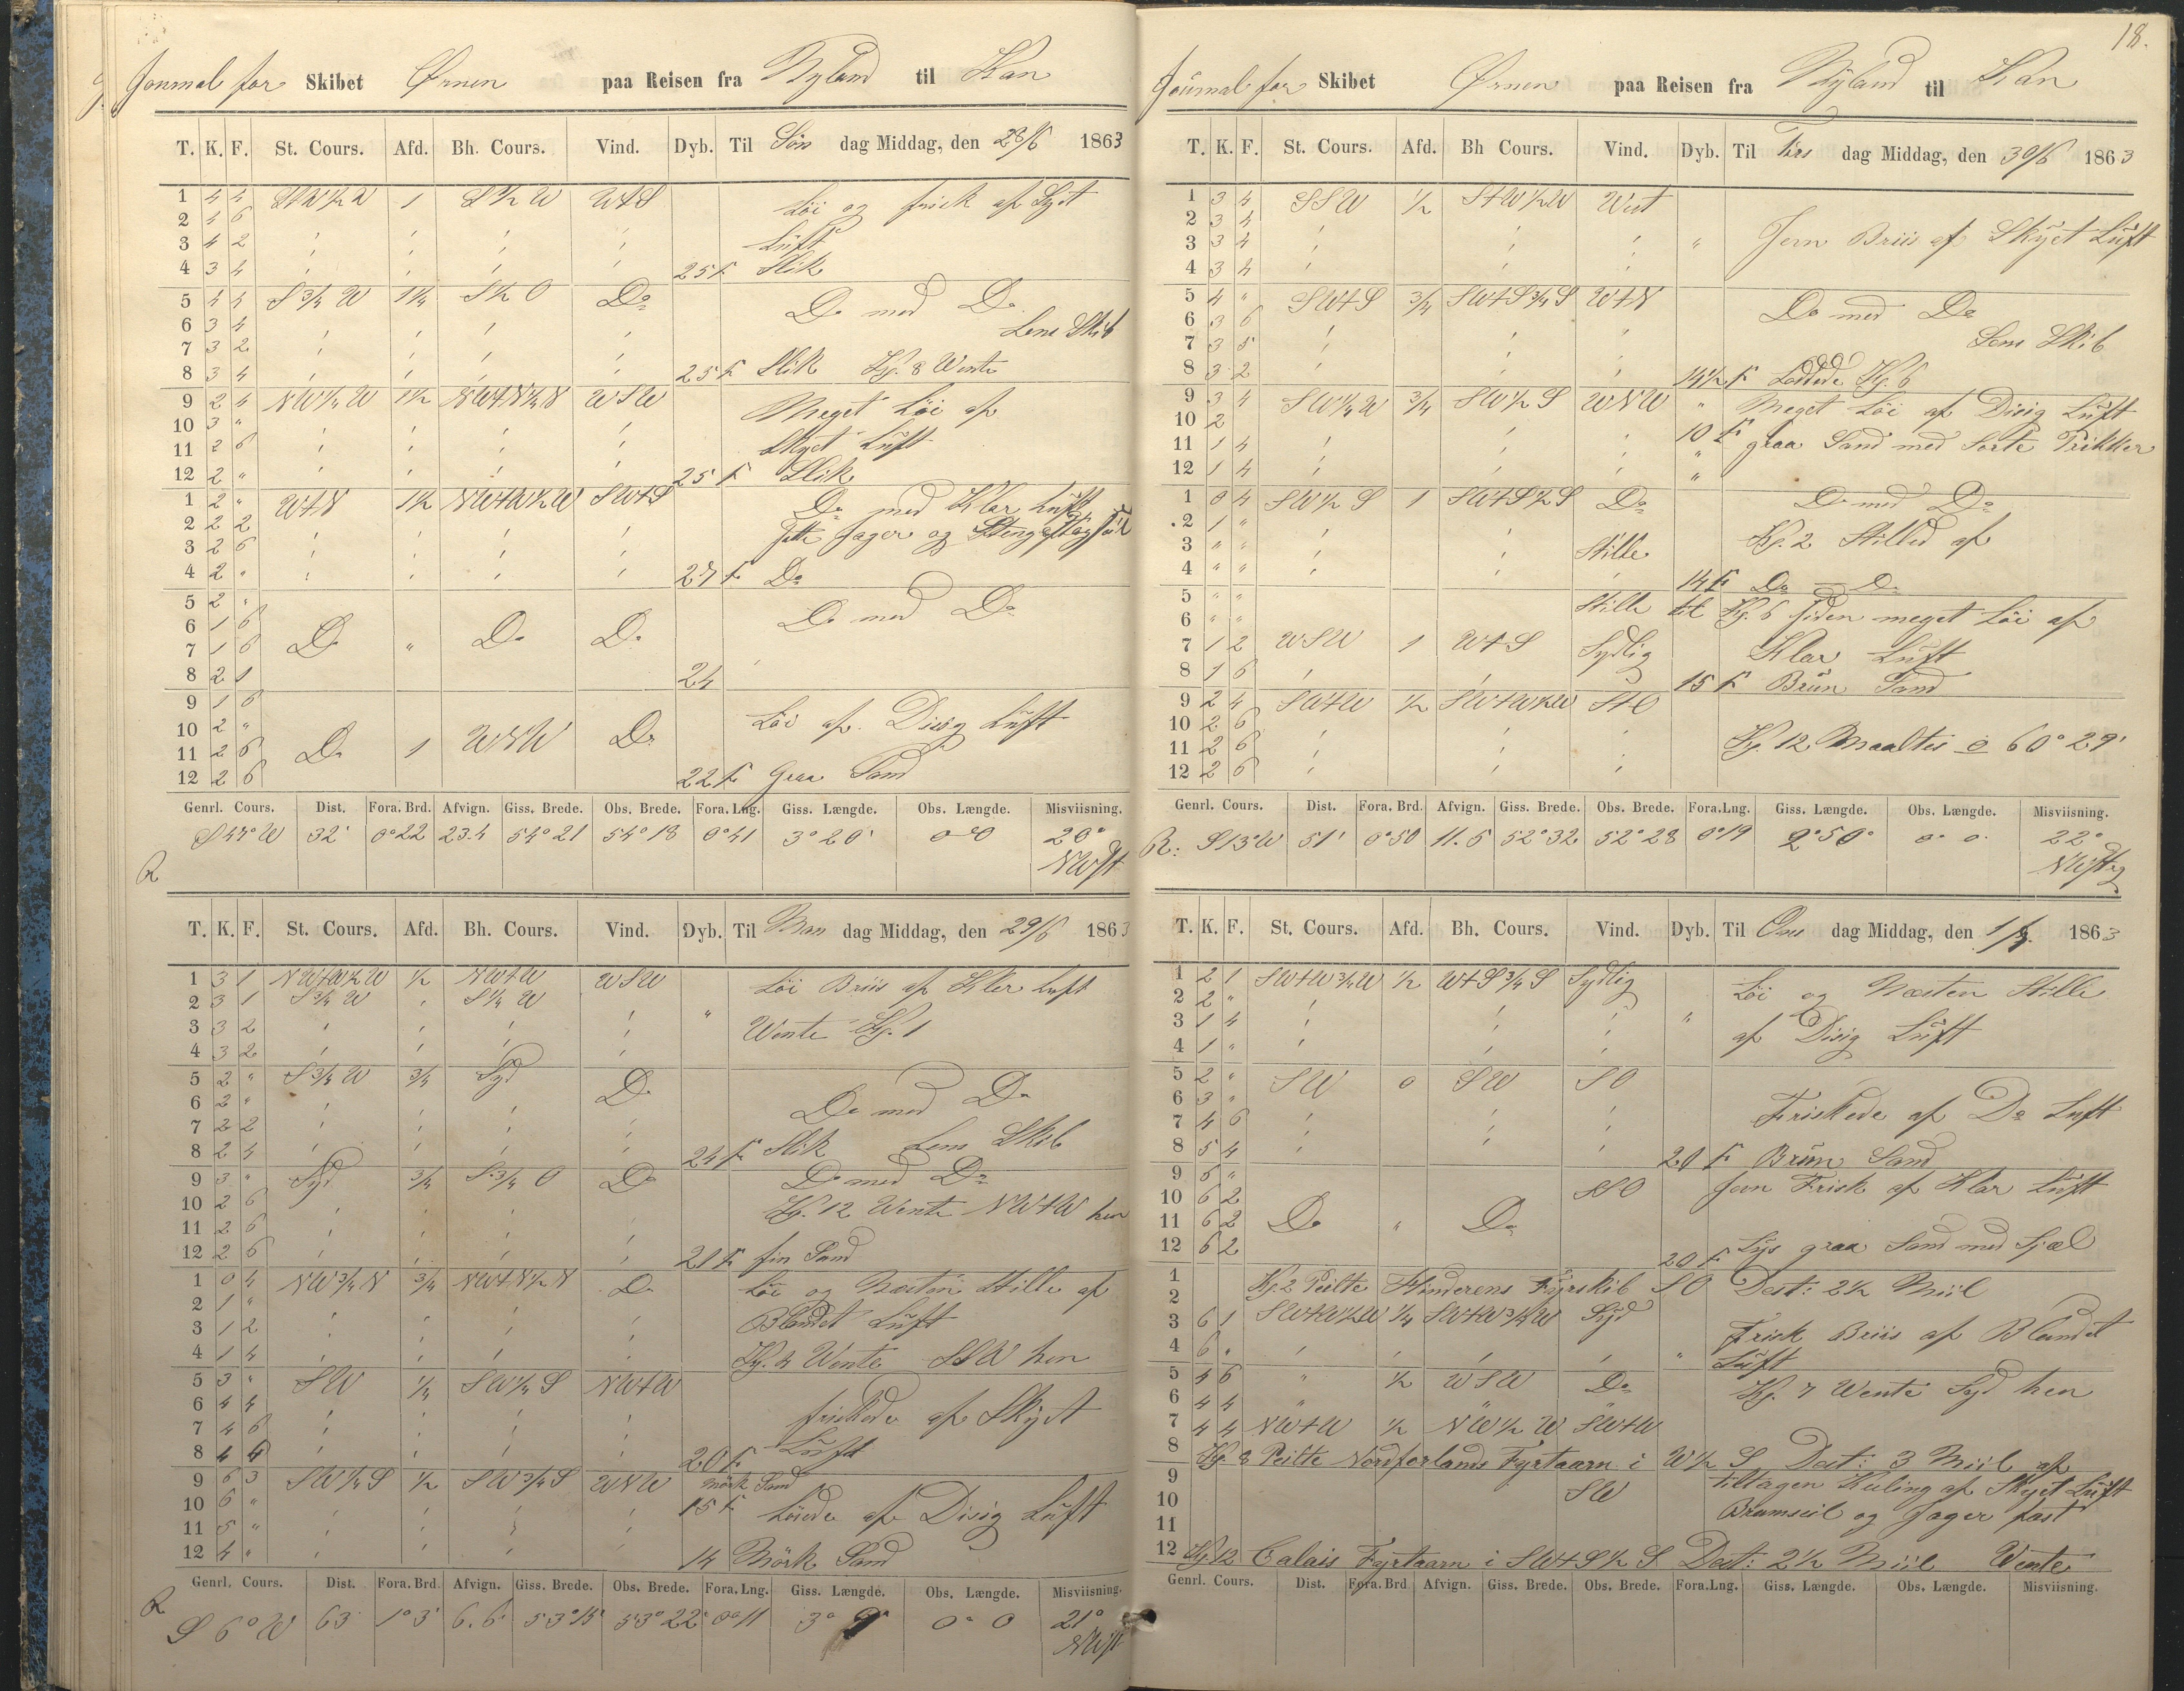 Journal for Skibet Ørnen paa Reisen fra Nyland til Kan
T. K. F. St. Cours. Afd. Bh. Cours. Vind. Dyb. Til Søn dag Middag, den 28/6 1863
1 4 4 1 S½W W+S Löi og frisk af Skyet
2 4 6
3 4 2 Luft
4 3 4 25 F Slik
5 4 4 S¾W 1¼ S½O Do Do med Do
6 3 4 Lens Skib
7 3 2
8 3 4 25 F Slik Kj. 8 Wente
9 2 4 NW¼W 1½ NW+N¼N WSW Meget Löi af
10 3 "
11 2 6 Skyet Luft
12 2 " 25 F Slik
1 2 " W+N 1½ NW+W½W SW+S Do med Klar Luft
2 2 2 Jager og
3 2 6
4 2 " 27 F Do
5 2 " Do med Do
6 1 6
7 1 6 Do " Do Do
8 2 1 24
9 1 6
10 2 " Löi af Disig Luft
11 2 6 Do 1 WNW Do
12 2 6 22 F Graa Sand
Genrl. Cours. Dist. Fora. Brd. Afvign. Giss. Brede. Obs. Brede. Fora. Lng. Giss. Længde. Obs. Længde. Misviisning.
S 47° W 32' 0°22 23.4 54°21 54°18 0°41 3°20' 0°0 20°
NWst
R
T. K. F. St. Cours. Afd. Bh. Cours. Vind. Dyb. Til Man dag Middag, den 29/6 1863
1 3 1 NW+W½W ½ NW+W WSW Löi Briis af Klar Luft
2 3 1 S¾W " S¼W
3 3 2 " Wente Kj. 1
4 3 2
5 2 " S¾W ¾ Syd Do
6 2 " Do med Do
7 2 2
8 2 4 24 F Slik Lens Skib
9 3 " Syd ¾ S¾O Do Do med Do
10 2 6 Kj. 12 Wente NW+W hen
11 2 6
12 2 6 21 F fin Sand
1 0 4 NW¾N ¾ NW+N½N Do Löi og Næsten Stille af
2 1 "
3 1 2 Blandet Luft
4 1 4 Kj. 4 Wente SSW hen
5 3 " SW ¼ SW¼S NW+W
6 4 4 friskede af Skyet
7 4 6
8 4 4 20 F Luft
9 6 3 SW¼S ½ SW¾S WNW Mörk Sand
10 6 " 15 F Löiede af Disig Luft
11 5 "
12 4 " 14 Mörk Sand
Genrl. Cours. Dist. Fora. Brd. Afvign. Giss. Brede. Obs. Brede. Fora. Lng. Giss. Længde. Obs. Længde. Misviisning.
R
S 6° W 63 1°3' 6.6 53°15' 53°22' 0°11 3° 9' 0° 0 21°
NWst
18.
Journal for Skibet Ørnen paa Reisen fra Nyland til Kan
T. K. F. St. Cours. Afd. Bh Cours. Vind. Dyb. Til Tirs dag Middag, den 30/6 1863
1 3 4 SSW ½ S+W½W West
2 3 4
3 3 4 " Jevn Briis af Skyet Luft
4 3 4
5 4 " SW+S ¾ SW+S¾S W+N Do med Do
6 3 6
7 3 5 Lens Skib
8 3 2 14½ F Loddede Kj. 6
9 3 4 SW¼W ¾ SW½S WNW " Meget Löi af Disig Luft
10 2
11 1 4 10 F graa Sand med Sorte Prikker
12 1 4 "
1 0 4 SW½S 1 SW+S½S Do Do med Do
2 1 " Kj. 2 Stilled af
3 " " Stille
4 " " 14 F Do — Do
5 " " Stille til Kj. 6 siden meget Löi af
6 " "
7 1 2 WSW 1 W+S Sydlig Klar Luft
8 1 6 15 F Brun Sand
9 2 4 SW+W ½ SW+W½W S+O
10 2 6
11 2 6 Kj. 12 Maaltes 60° 29'
12 2 6
Genrl. Cours. Dist. Fora. Brd. Afvign. Giss. Brede. Obs. Brede. Fora. Lng. Giss. Længde. Obs. Længde. Misviisning.
R: S 13° W 51' 0°50 11.5 52°32 52°28 0°19 2°50° 0° 0 22°
NWstg
T. K. F. St. Cours. Afd. Bh. Cours. Vind. Dyb. Til Ons dag Middag, den 1/7. 1863
1 2 1 SW+W¾W ½ W+S¾S Sydlig Löi og Næsten Stille
2 2 "
3 1 4 " af Disig Luft
4 1 "
5 2 " SW 0 SW SO
6 3 " Friskede af Do Luft
7 4 6
8 5 4 20 F Brun Sand
9 6 " SSO Jevn Frisk af Klar Luft
10 6 2
11 6 2 Do " Do
12 6 2 20 F Lys graa Sand med Sjæl
1 Kj. 2 Peilte Hinderens Fyrskib SO Dest: 2½ Miil
2
3 6 1 SW+W½W ¼ SW+W¾W Syd Frisk Briis af Blandet
4 6 " " Luft
5 4 6 " ½ WSW Do Kj. 7 Wente Syd hen
6 4 4
7 4 4 NW+W ½ NW½W SW+W
8 Kj. 8 Peilte Nordforlands Fyrtaarn i W½S Dest: 3 Miil af
9 SW tiltagen Kuling af Skyet Luft
10 Bramseil og Jager fast
11
12 Kj 12 Calais Fyrtaarn i SW+S½S Dest: 2½ Miil Wente
Genrl. Cours. Dist. Fora. Brd Afvign. Giss. Brede. Obs. Brede. Fora. Lng. Giss. Længde. Obs. Længde. Misviisning.